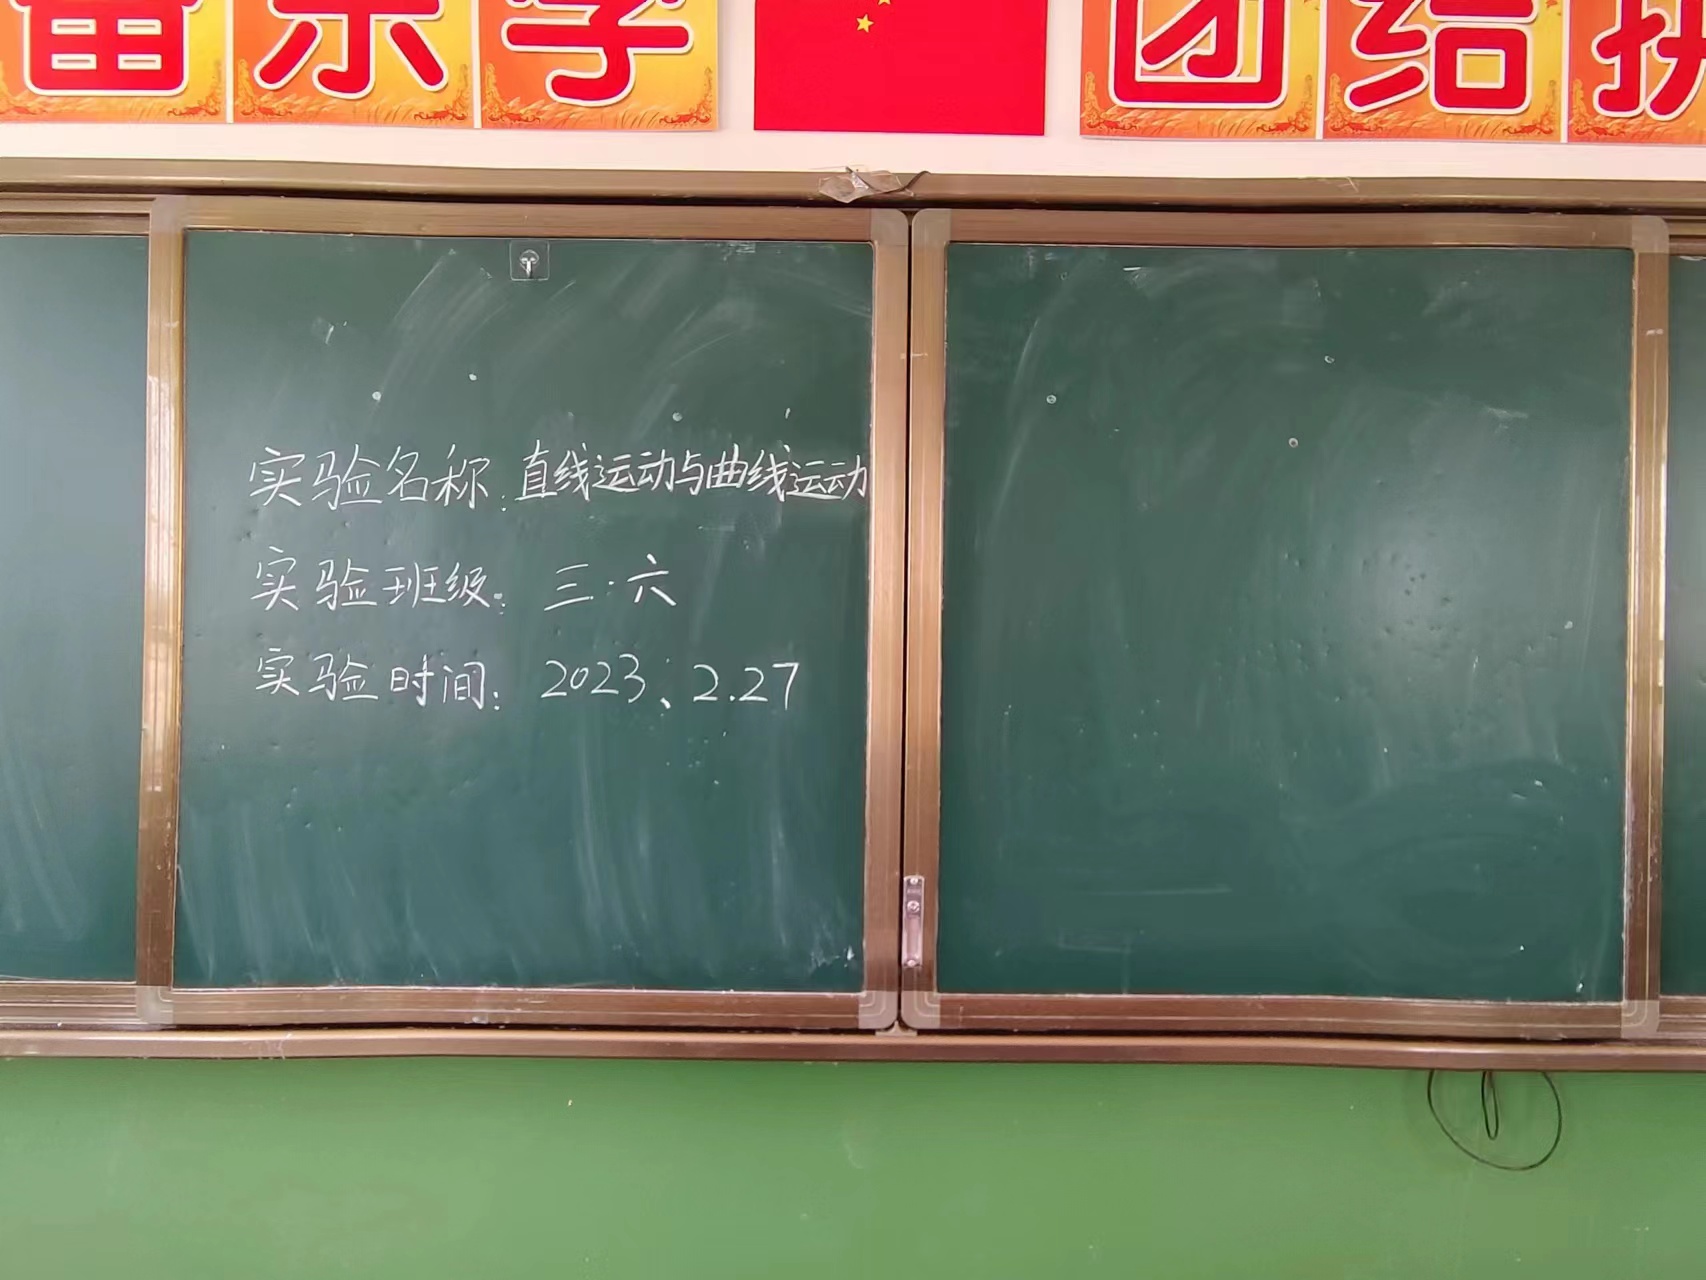 学 团结拼
实验名称:直线运动与曲线运动
实验班级:三·六
实验时间:2023、2.27